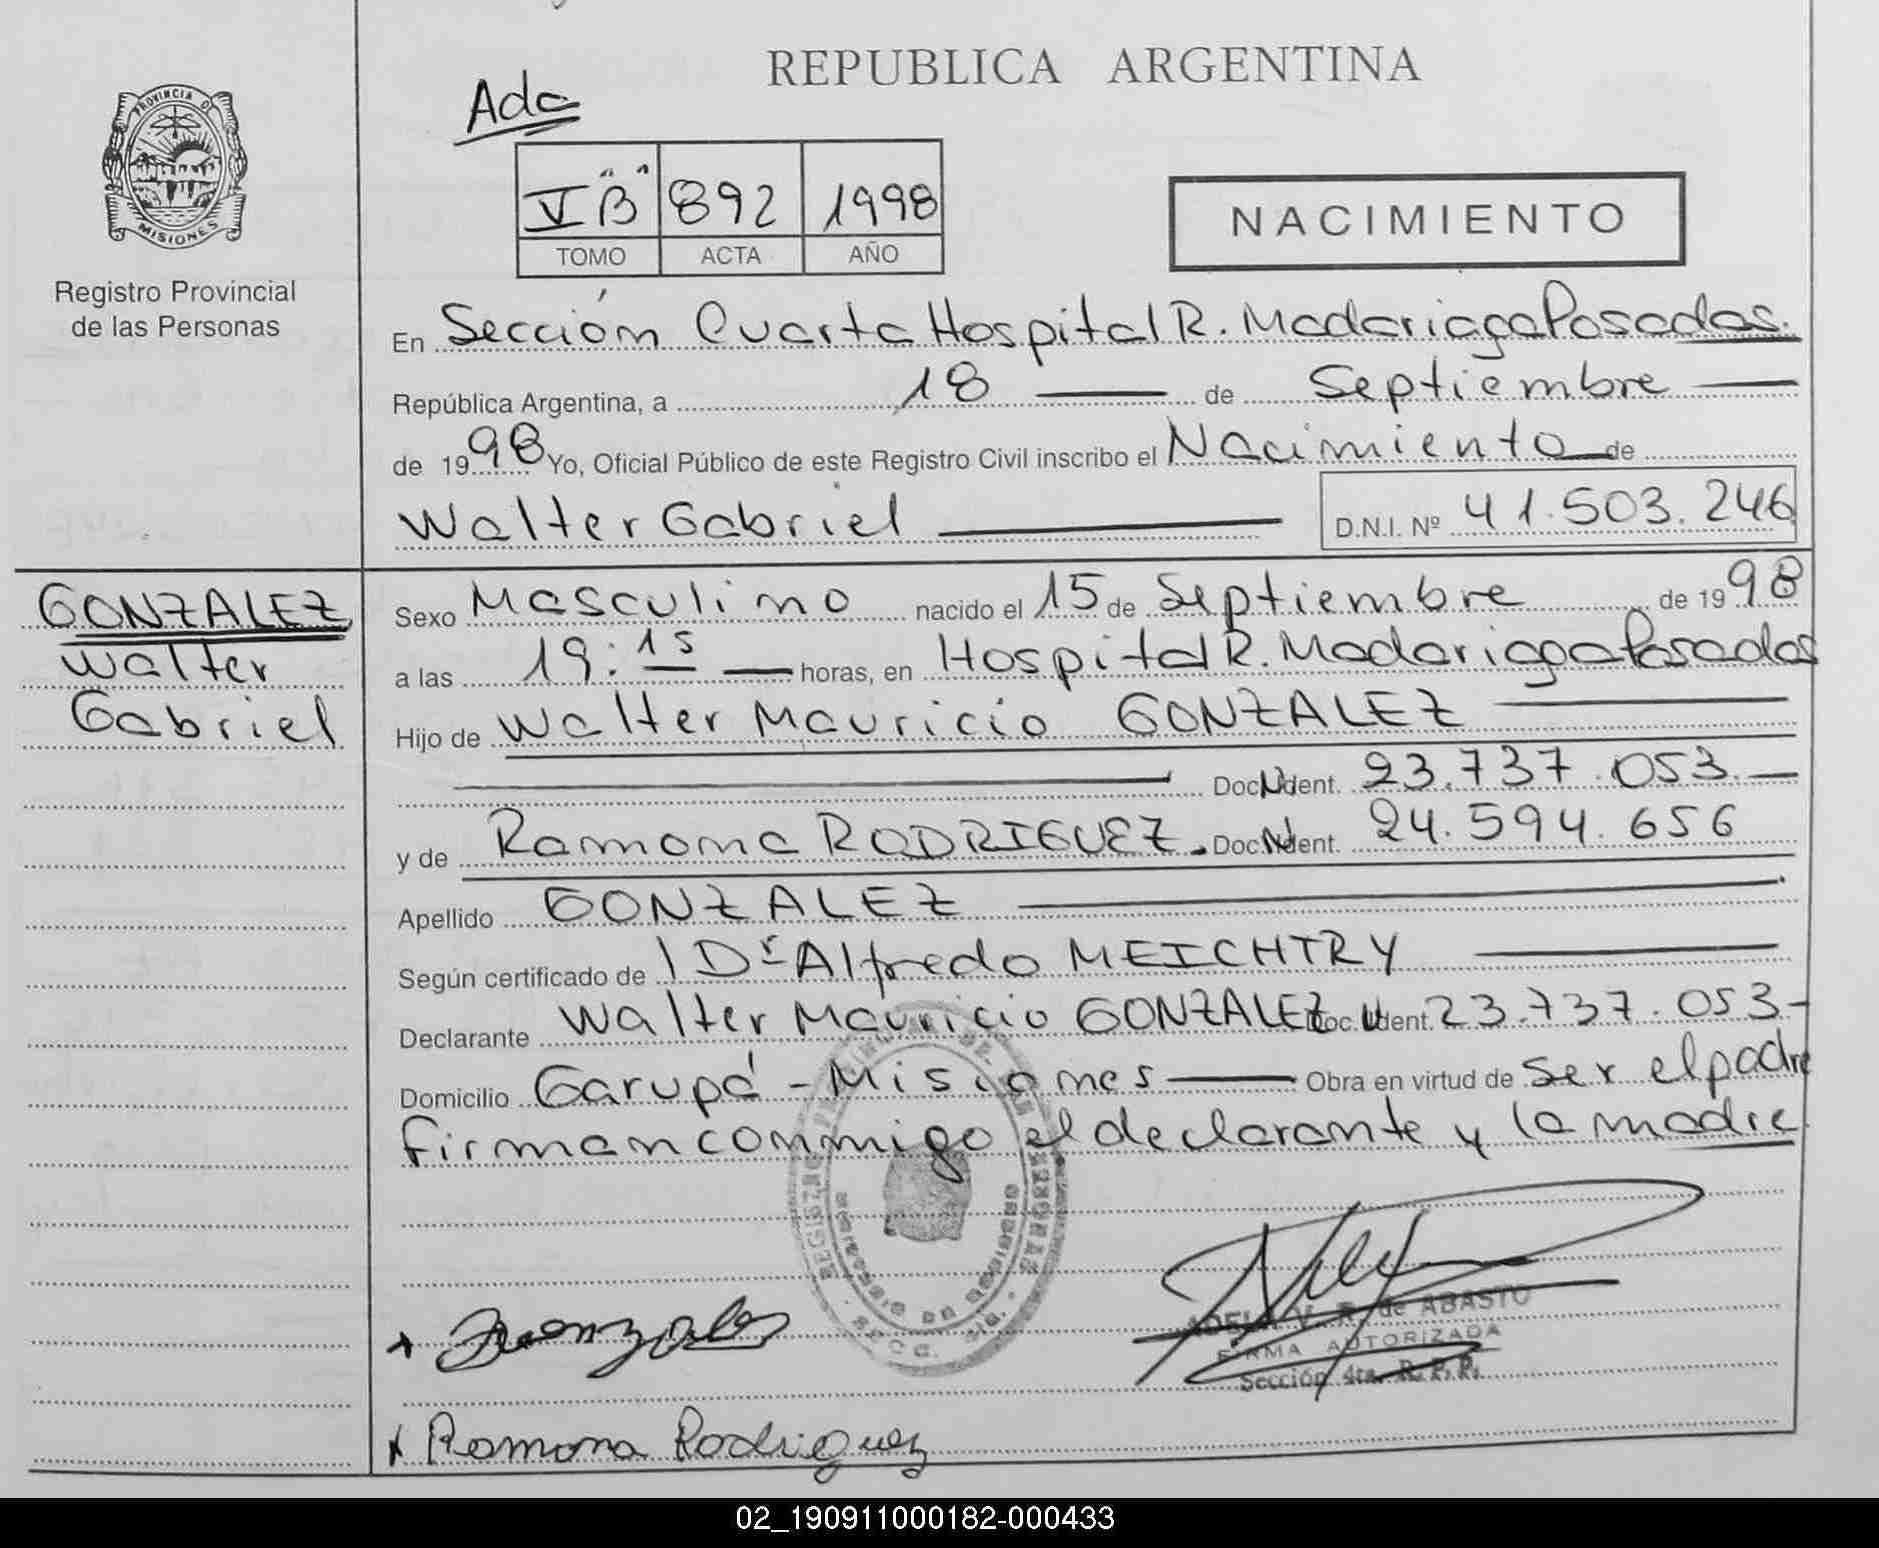 REPUBLICA ARGENTINA
Ada
PROVINCIA D
MISIONES
Registro Provincial
de las Personas
V "B" 892 1998
TOMO ACTA AÑO
NACIMIENTO
En Sección Cuarta Hospital R. Madariaga Posadas.
República Argentina, a 18 de Septiembre
de 1998 Yo, Oficial Público de este Registro Civil inscribo el Nacimiento de
Walter Gabriel D.N.I. Nº 41.503.246
GONZALEZ
Walter
Gabriel
Sexo Masculino nacido el 15 de Septiembre de 1998
a las 19:15 horas, en Hospital R. Madariaga Posadas
Hijo de Walter Mauricio GONZALEZ
Doc. Ident. 23.737.053.
y de Ramona RODRIGUEZ. Doc. Ident. 24.594.656
Apellido GONZALEZ
Según certificado de Dr Alfredo MEICHTRY
Declarante Walter Mauricio GONZALEZ Doc. Ident. 23.737.053-
Domicilio Garupá - Misiones Obra en virtud de Ser el padre
firman conmigo el declarante y la madre.
ADELA V. R. de ABASTO
FIRMA AUTORIZADA
Sección 4ta. R. P. P.
x Gonzalez
x Ramona Rodriguez
02_190911000182-000433